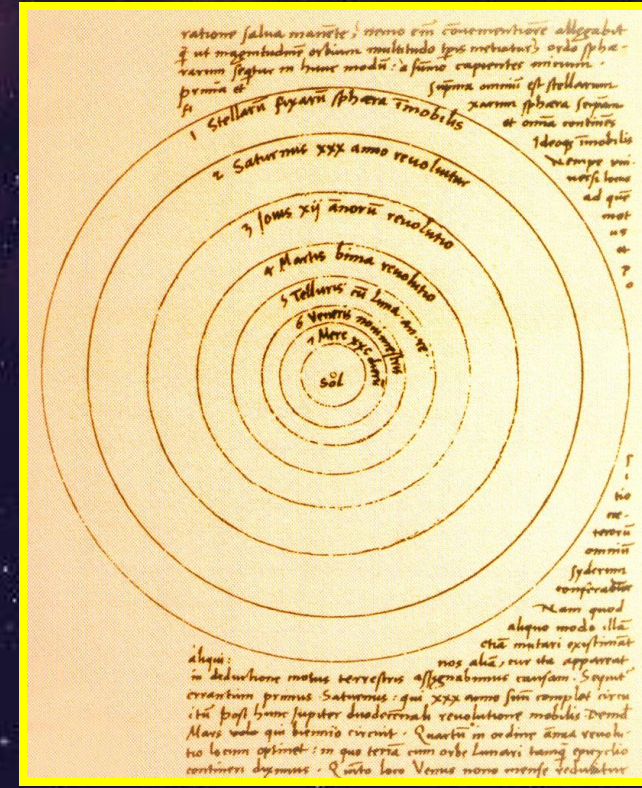 ratione salua manēte, nemo em̄ conuenientiorē allegabit
q̄ ut magnitudinē orbium multitudo tp̄is metiatur, ordo sphæ-
rarum sequitur in hunc modū: a sūmo capientes initium.
prima et suprema omniū est stellarum
fixarum sphæra seipsam
et omnia continēs
Ideoqȝ immobilis
Nempe uni-
uersi locus
ad quē
mot
us
et
p
o
1 Stellarū fixarū sphæra immobilis
2 Saturnus xxx anno reuoluitur
3 Iouis xij ānorū reuolutio
4 Martis bima reuolutio
5 Telluris cū Luna an. re.
6 Veneris nonimestris
7 Merc xxc dierū
Sol
s
i
tio
cæ-
terorū
omniū
syderum
conferatur
Nam quod
aliquo modo illā
etiā mutari existimāt
aliqui: nos aliā, cur ita appareat
in deductione motus terrestris assignabimus causam. Sequitur
errantium primus Saturnus: qui xxx anno suū complet circu
itū post hunc Jupiter duodecennali reuolutione mobilis Deinde
Mars uolo qui biennio circuit. Quartū in ordine annua reuolu-
tio locum optinet: in quo terrā cum orbe Lunari tamq̄ epicyclo
contineri diximus. Quinto loco Venus nono mense reducitur